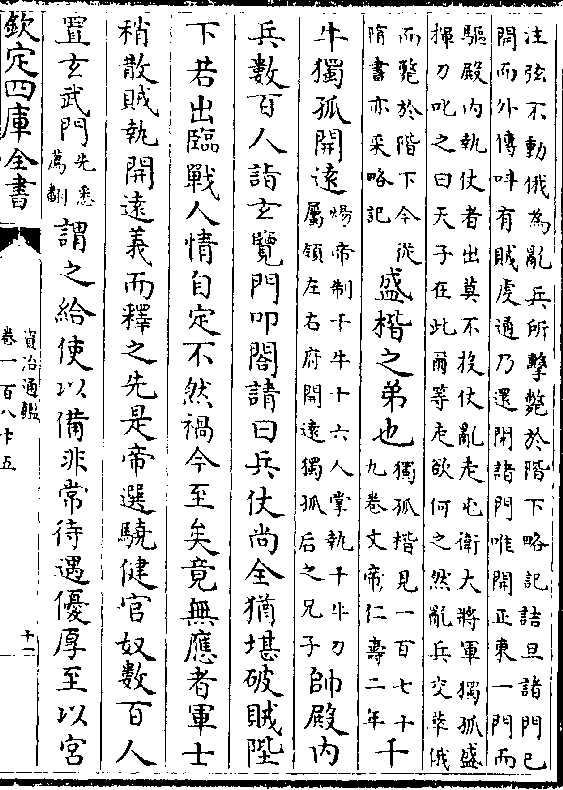 注弦不動俄為亂兵所擊斃於階下略記詰旦諸門已
開而外傳呼有賊虔通乃還閉諸門唯開正東一門而
驅殿内執仗者出莫不投仗亂走屯衛大將軍獨孤盛
揮刀叱之曰天子在此爾等走欲何之然亂兵交萃俄
而斃於階下今從
隋書亦采略記
盛楷之弟也
獨孤楷見一百七十
九卷文帝仁壽二年
千
牛獨孤開遠
煬帝制千牛十六人掌執千牛刀
屬領左右府開遠獨孤后之兄子
帥殿内
兵數百人詣玄覽門叩閤請曰兵仗尚全猶堪破賊陛
下若出臨戰人情自定不然禍今至矣竟無應者軍士
稍散賊執開遠義而釋之先是帝選驍健官奴數百人
置玄武門
先悉
薦翻
謂之給使以備非常待遇優厚至以宮
欽定四庫全書
資治通鑑
卷一百八十五
十一